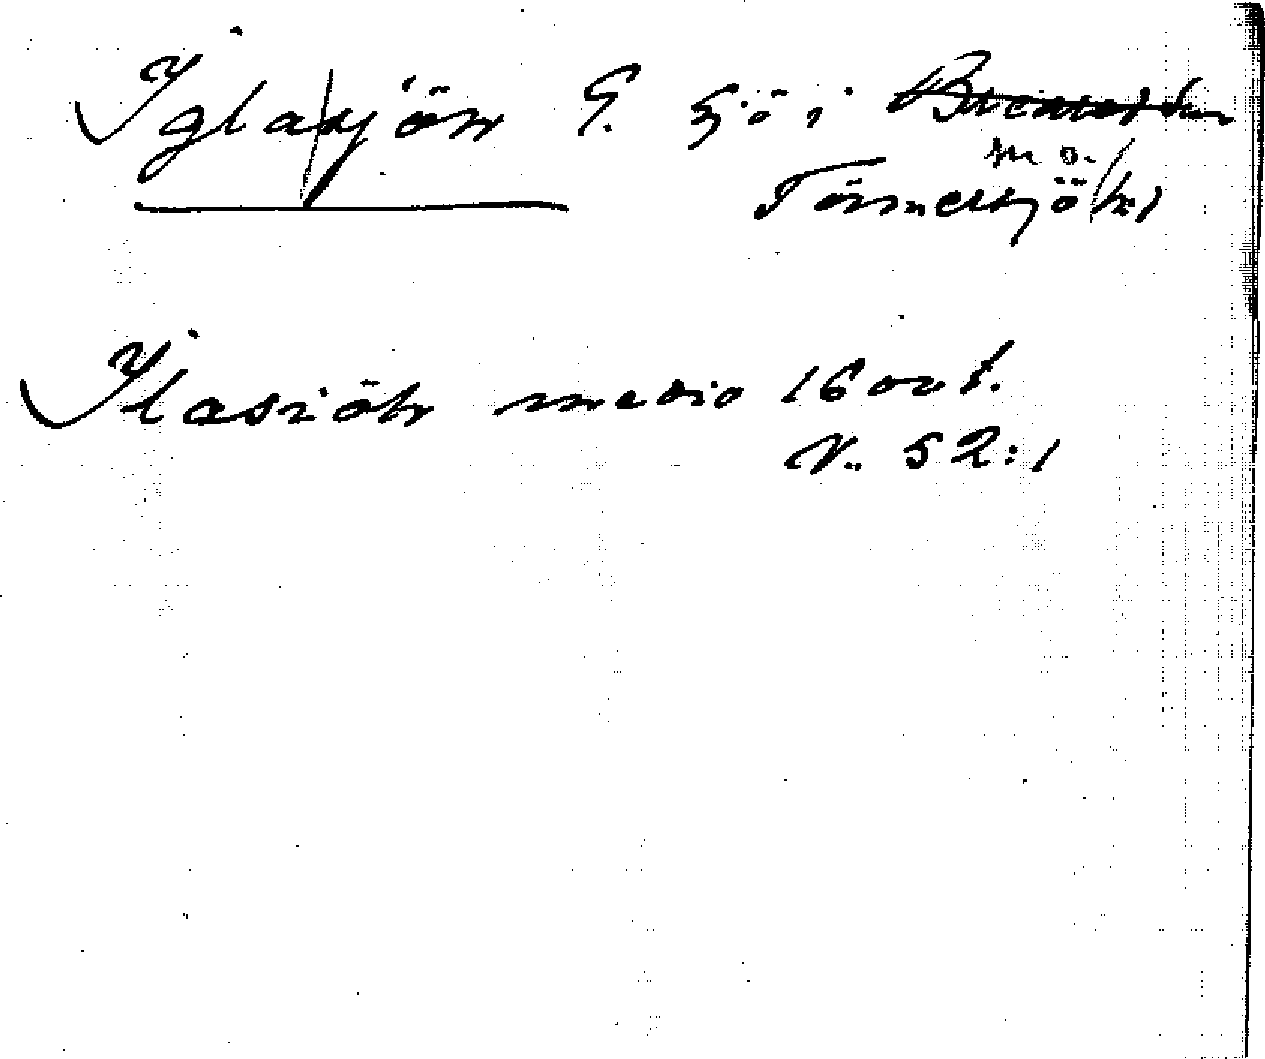 Iglasjön G. sjö i
m o.
Törnersjö hd
Ilasiöh medio 1600 t.
N. 52:1